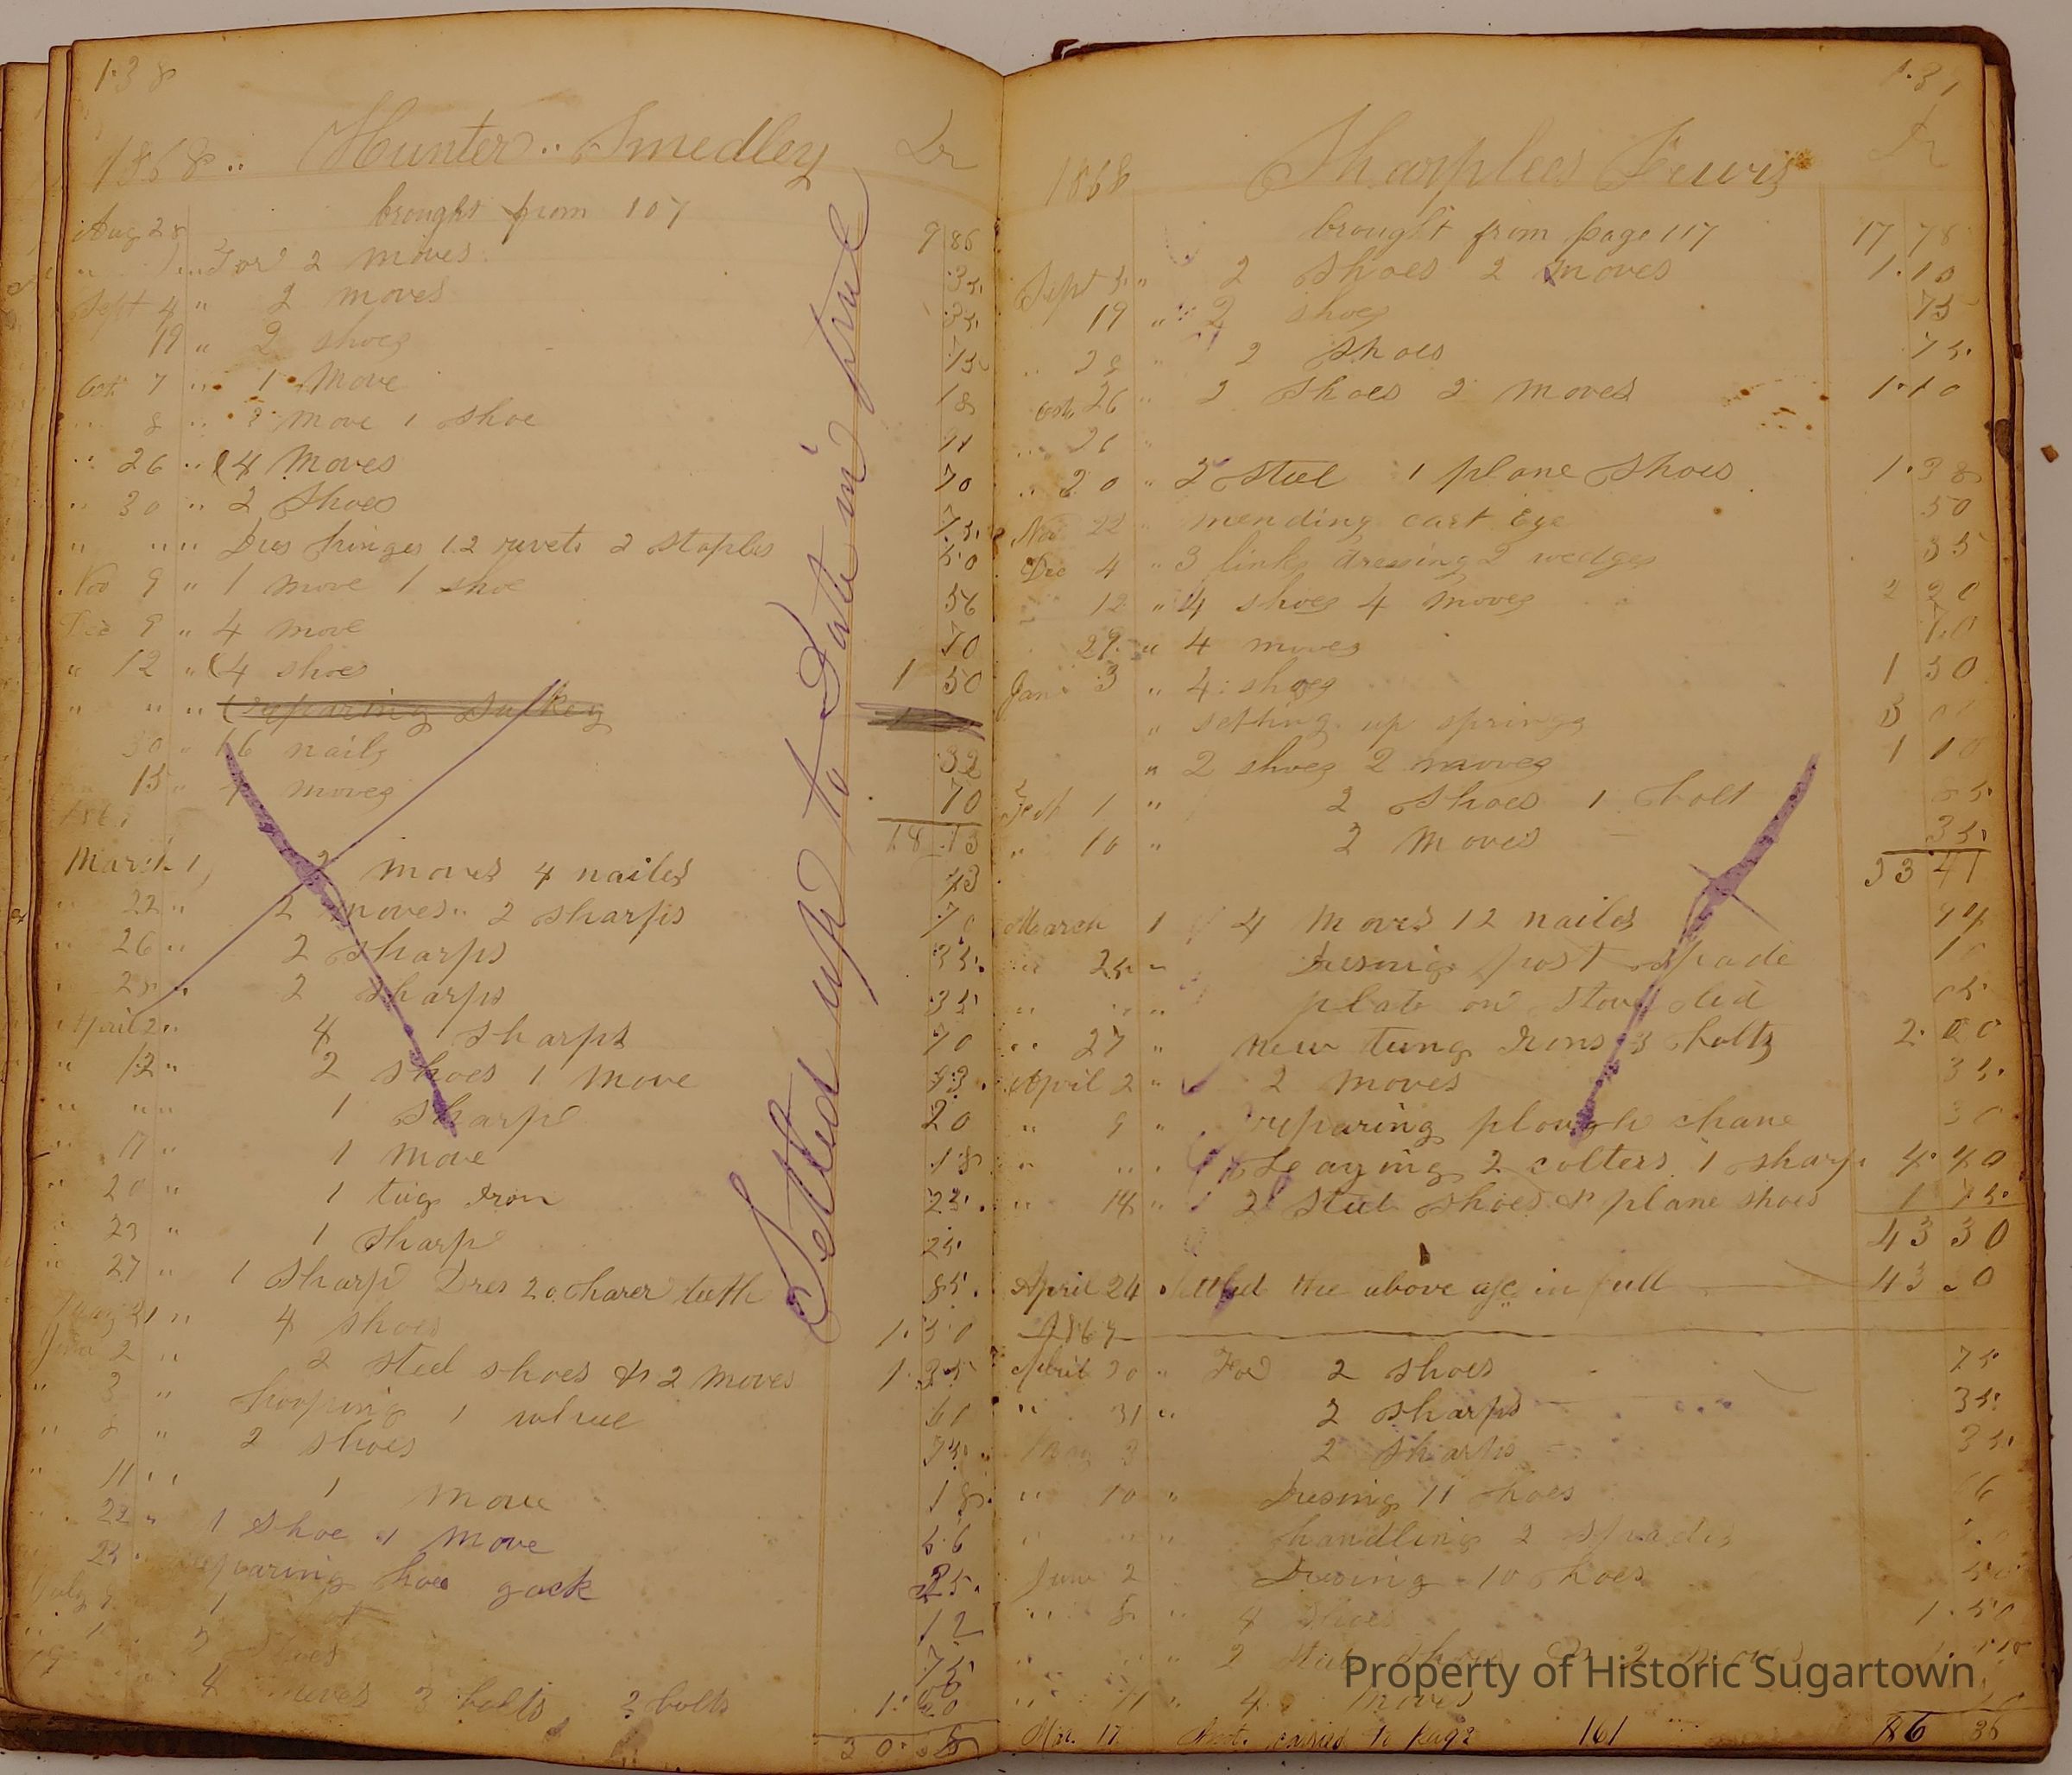 138
1868 Hunter Smedley Dr
brought from 107
Aug 28 9 86
" " For 2 moves 35
Sept 4 " 2 moves 35
19 " 2 shoes 75
Oct 7 " 1 Move 18
" 8 " move 1 shoe
" 26 " 4 Moves 70
" 30 " 2 Shoes 75
" " " Dres hinges 12 rivets 2 Staples 50
Nov 9 " 1 move 1 shoe 56
Dec 9 " 4 move 70
" 12 " 4 shoes 1 50
" " " repairing Sulkey
30 " 16 nails 32
15 " 4 moves 70
18.13
March 1, 2 moves 4 nailes 43
" 22 " 2 moves " 2 sharps 70
" 26 " 2 sharps 35
" 28 " 2 sharps 35
April 2 " 4 sharps 70
" 12 " 2 shoes 1 move 93
" " " 1 sharp 20
" 17 " 1 Move 18
" 20 " 1 tug Iron 25
" 23 " 1 Sharp 25
" 27 " 1 Sharp Dres 20 harer teeth 85
May 21 " 4 shoes 1.50
June 2 " 2 steel shoes & 2 moves 1.35
" 3 " 1 wheel
" 8 " 2 shoes 75
" 11 " 1 move 18
" 22 " 1 Shoe 1 Move 56
25 " reparing hoes gack 25
July 1 12
shoes 75
4 moves 3 bolts 2 bolts
Settled up to Date in full
1868 Sharpless Lewis Dr
brought from page 117 17 78
Sept 5 " 2 Shoes 2 moves 1.10
19 " 2 shoes 75
" 28 " 2 Shoes 75
Oct 26 " 2 Shoes 2 moves 1.10
" 26 "
" 20 " 2 Steel 1 plane Shoes 1.38
Nov 22 " mending cart Eye 50
Dec 4 " 3 links dressing 2 wedges 35
12 " 4 shoes 4 moves 2 20
29 " 4 moves 70
Jan 3 " 4 shoes 1 50
" setting up springs
" 2 shoes 2 mooves 1 10
Feb 1 " 2 Shoes 1 bolt
" 10 " 2 Moves 35
33 41
March 1 4 Moves 12 nailes 94
" 25 " Dresing post spade
" " " plate on Stove lid
" 27 " new tung Irons 3 boltz 2.00
April 2 " 2 moves 35
" 9 " reparing plough chane 30
" " " Leaying 2 colters 1 sharp 4.40
" 14 " 2 Steel shoes & plane shoes 1 75
43 30
April 24 Settled the above a/c in full 43 30
April 30 " For 2 shoes 75
" 31 " 2 sharps 35
May 2 2 Sharps 35
" 10 " Dresing 11 hoes 66
" " " handling 2 spades
June 2 Dresing 10 hoes 50
" 5 " 4 Shoes 1.50
" " " 2 Steel Shoes & 2 moves
" 11 " 4 moves
Mar. 17 Amt. carried to page 161
Property of Historic Sugartown